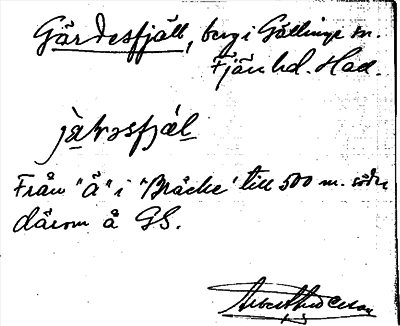 Gärdesfjäll, berg i Gällinge sn.
Fjäre hd. Had.
Från "ä" i "Bräcke" till 500 m. söder
därom å GS.